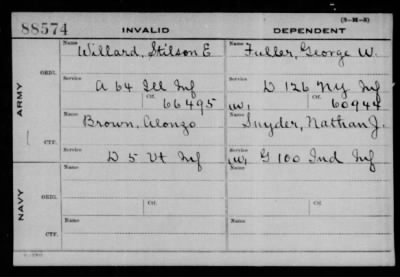 88574 INVALID DEPENDENT (3-26-3)
ARMY ORIG. Name Willard, Stilson E Name Fuller, George W.
Service A 64 Ill Inf Service D 126 NY Inf
Ctf. 66495 (W) Ctf. 60944
CTF. Name Brown, Alonzo Name Snyder, Nathan J.
Service D 5 Vt Inf Service (W) G 100 Ind Inf
NAVY ORIG. Name Ctf. Name Ctf.
CTF. Name Name